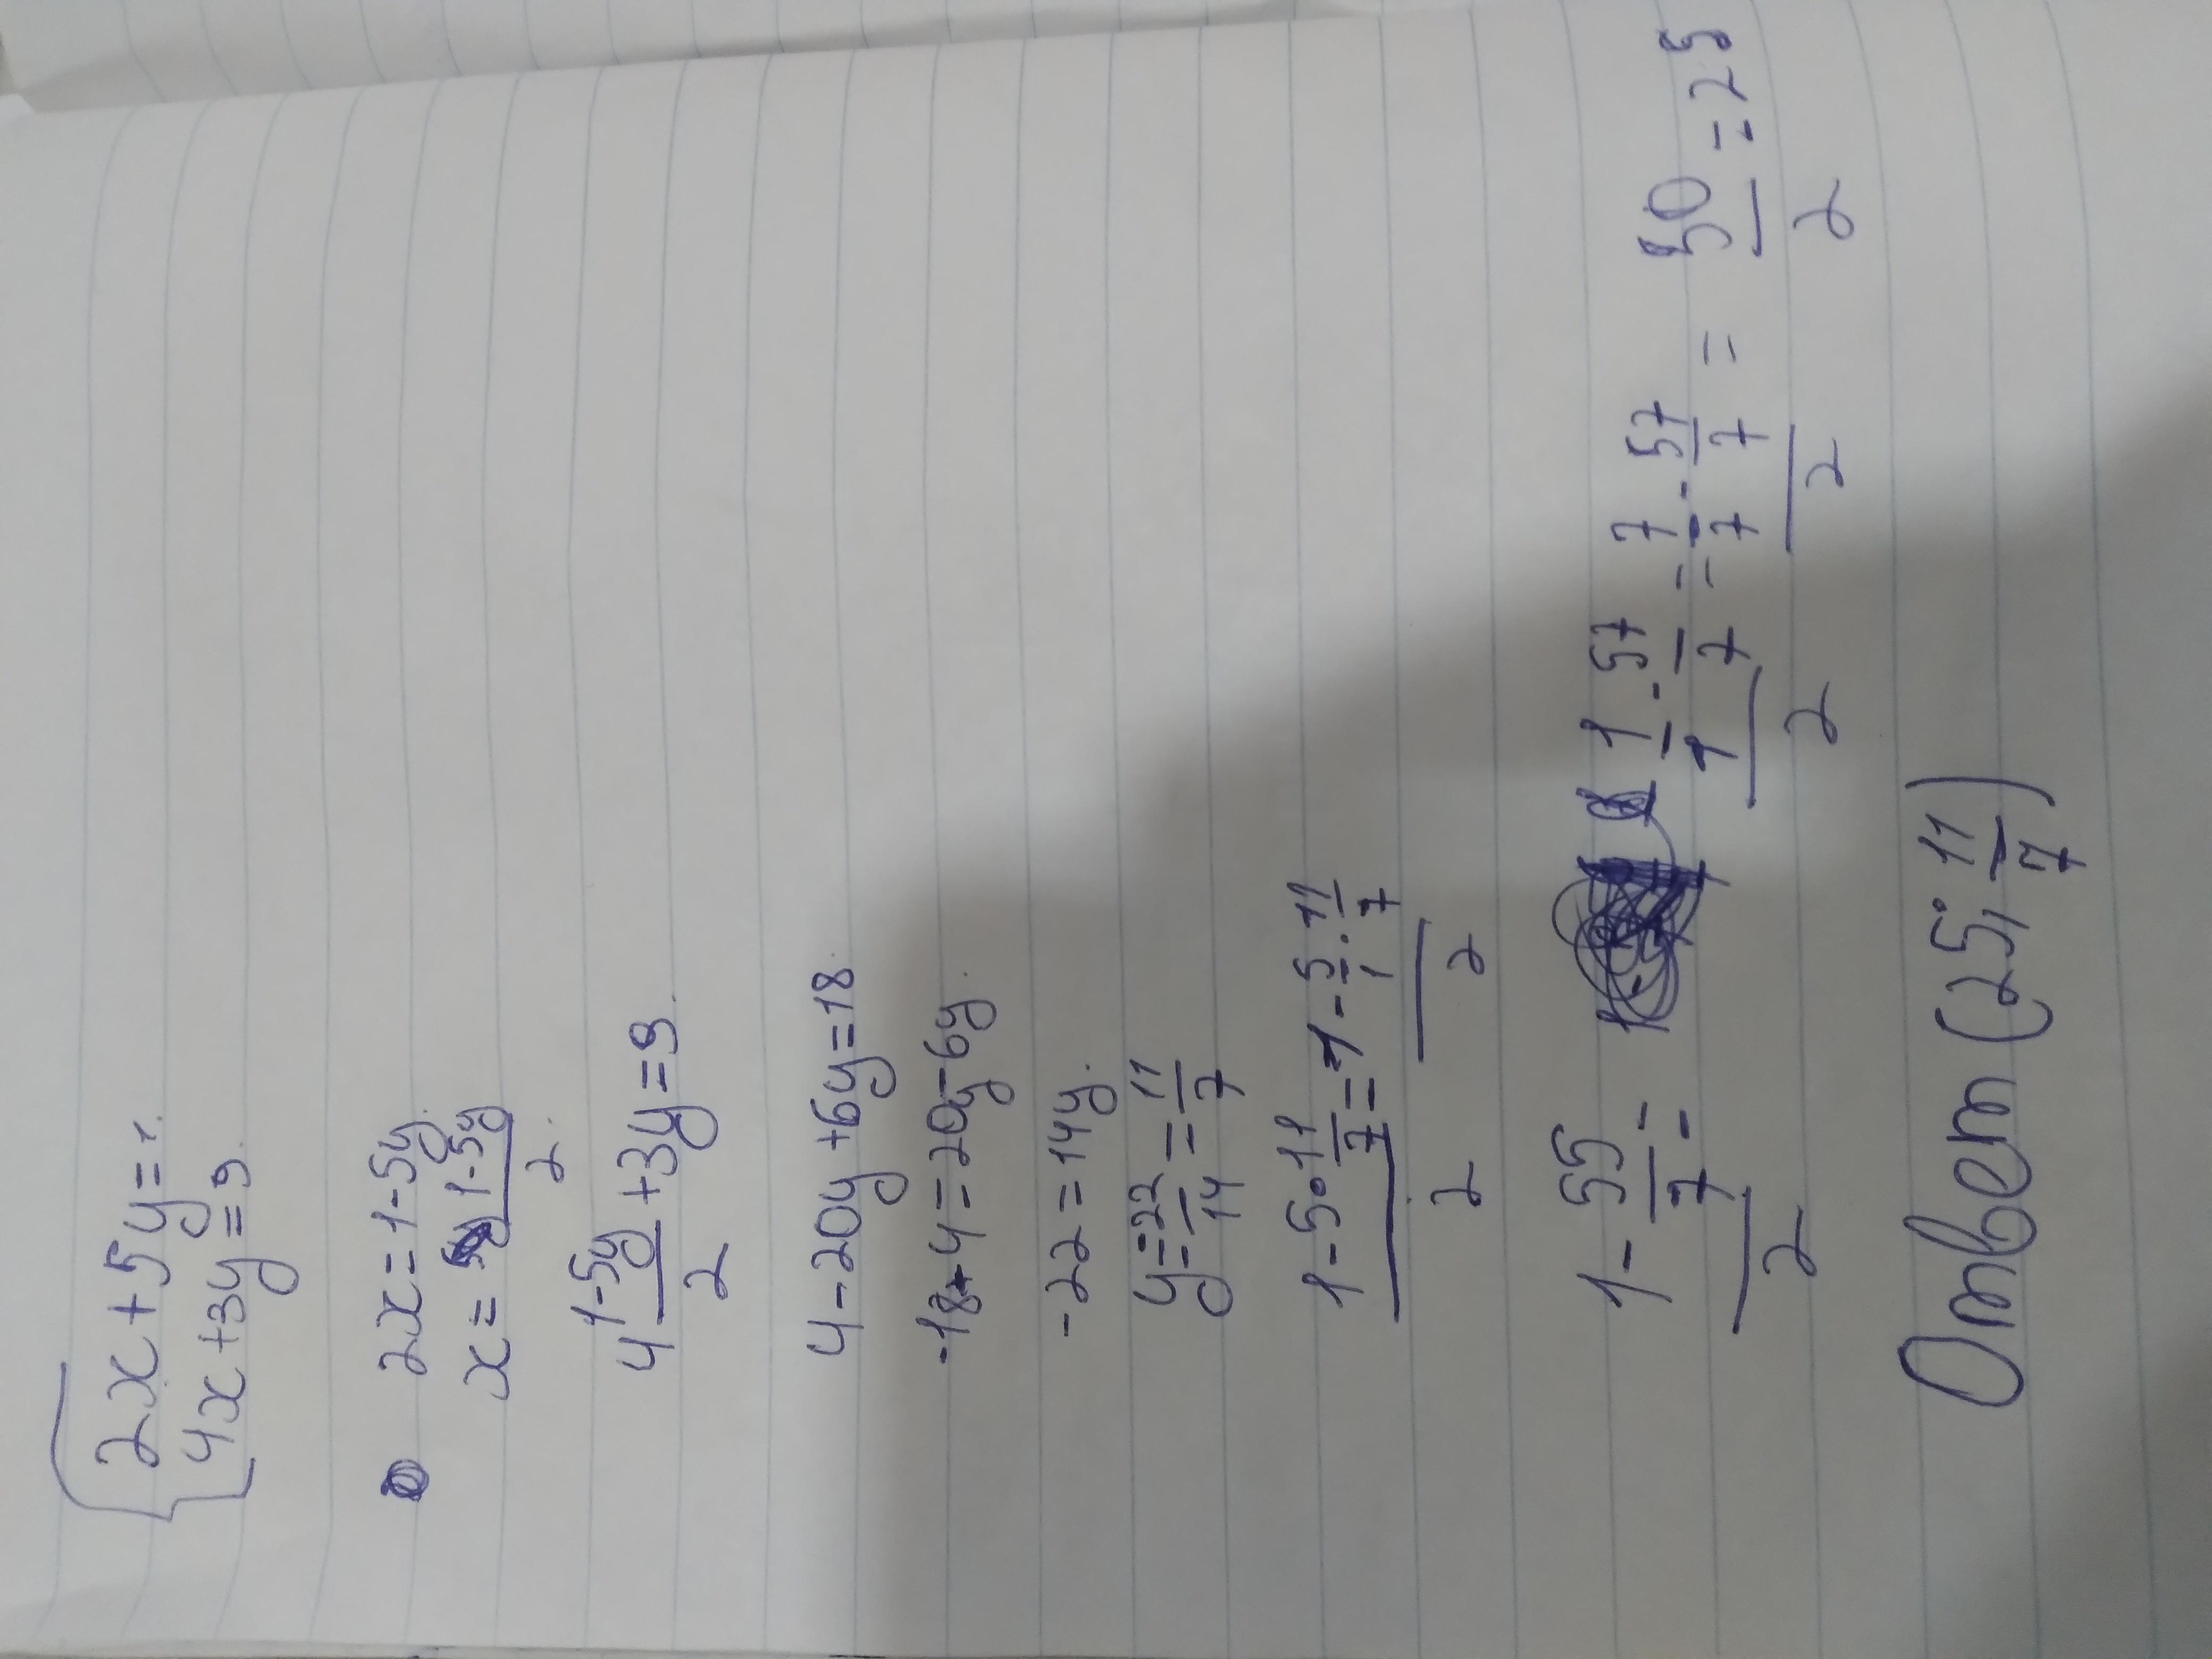 2x+5y=1.
4x+3y=9.
2x=1-5y.
x= (1-5y)/2.
4 (1-5y)/2 +3y=9.
4-20y+6y=18.
-18+4=20y-6y.
-22=14y.
y=-22/14=11/7
(1-5•11/7)/2=(1-5/1·11/7)/2
(1-55/7)/2= (1/1-57/7)/2=(7/7-57/7)/2=50/2=25
Ответ (25; 11/7)